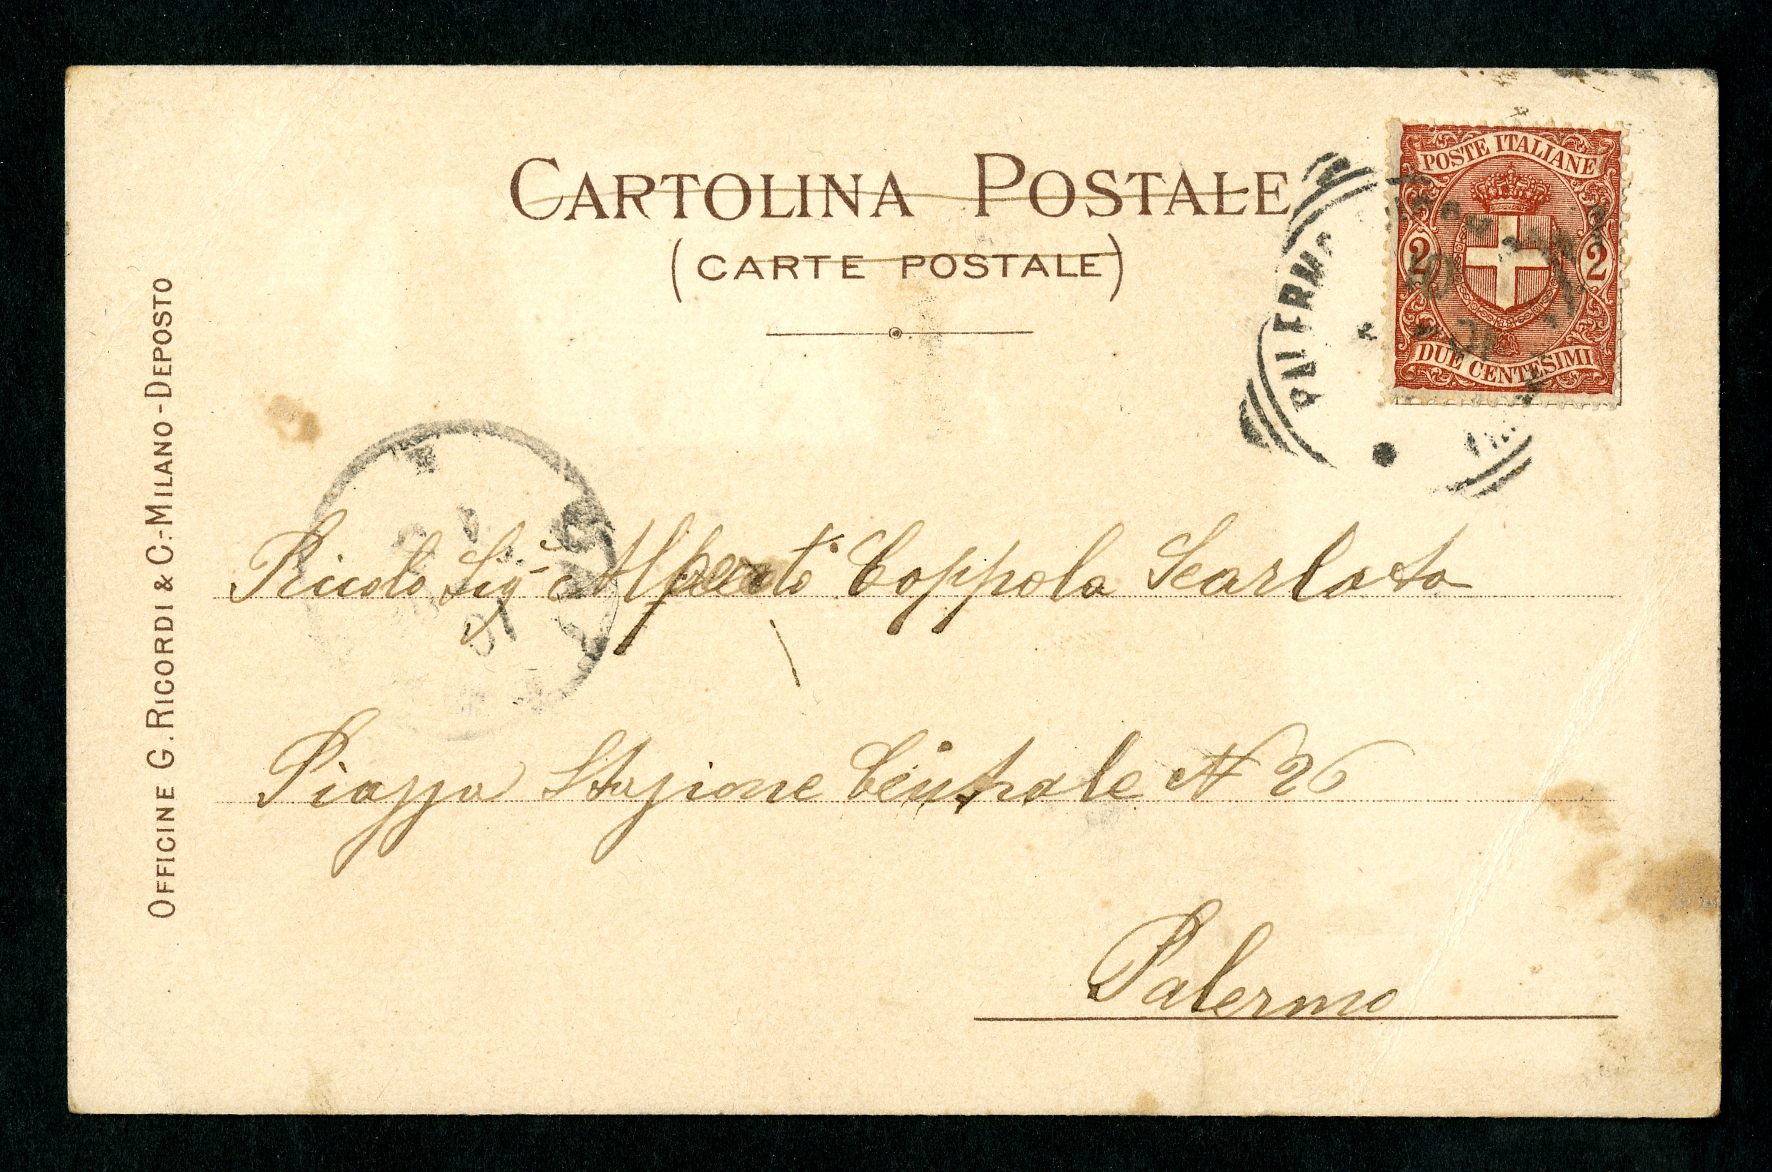 CARTOLINA POSTALE
(CARTE POSTALE)
POSTE ITALIANE
2 2
DUE CENTESIMI
PALERMO
OFFICINE G. RICORDI & C.-MILANO-DEPOSTO
Piccolo Sig. Alperto Coppola Scarlata
Piazza Stazione Centrale N 26
Palermo